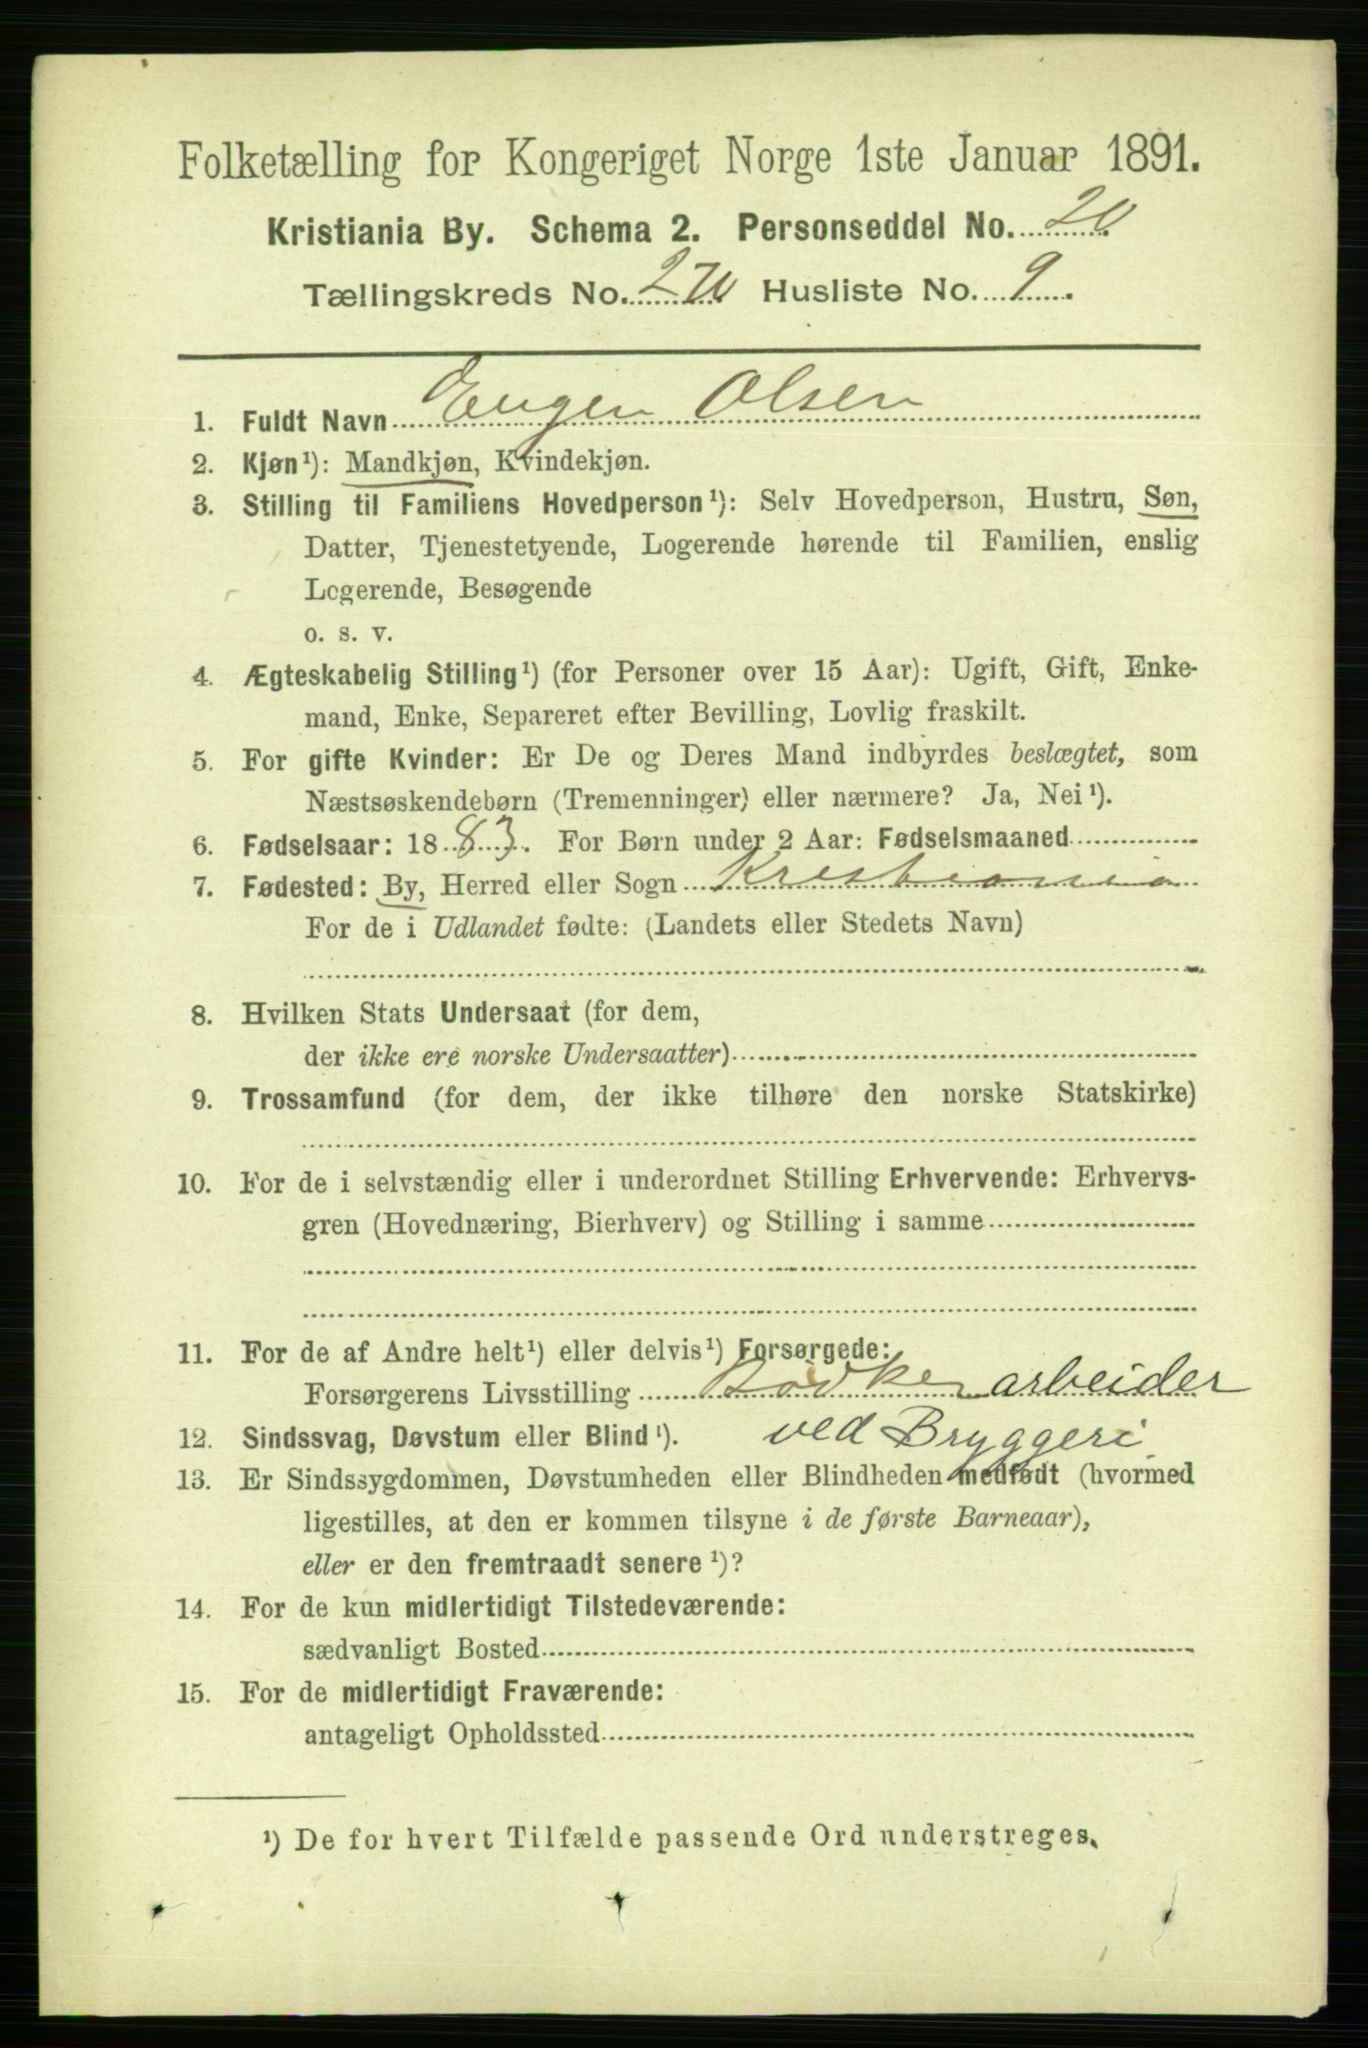 Folketælling for Kongeriget Norge 1ste Januar 1891.
Kristiania By. Schema 2. Personseddel No. 20.
Tællingskreds No. 270 Husliste No. 9.
1. Fuldt Navn Eugen Olsen
2. Kjøn¹): Mandkjøn, Kvindekjøn.
3. Stilling til Familiens Hovedperson¹): Selv Hovedperson, Hustru, Søn,
Datter, Tjenestetyende, Logerende hørende til Familien, enslig
Logerende, Besøgende
o. s. v.
4. Ægteskabelig Stilling¹) (for Personer over 15 Aar): Ugift, Gift, Enke-
mand, Enke, Separeret efter Bevilling, Lovlig fraskilt.
5. For gifte Kvinder: Er De og Deres Mand indbyrdes beslægtet, som
Næstsøskendebørn (Tremenninger) eller nærmere? Ja, Nei¹).
6. Fødselsaar: 1883. For Børn under 2 Aar: Fødselsmaaned
7. Fødested: By, Herred eller Sogn Kristiania
For de i Udlandet fødte: (Landets eller Stedets Navn)
8. Hvilken Stats Undersaat (for dem,
der ikke ere norske Undersaatter)
9. Trossamfund (for dem, der ikke tilhøre den norske Statskirke)
10. For de i selvstændig eller i underordnet Stilling Erhvervende: Erhvervs-
gren (Hovednæring, Bierhverv) og Stilling i samme
11. For de af Andre helt¹) eller delvis¹) Forsørgede:
Forsørgerens Livsstilling Bødkerarbeider
ved Bryggeri
12. Sindssvag, Døvstum eller Blind¹).
13. Er Sindssygdommen, Døvstumheden eller Blindheden medfødt (hvormed
ligestilles, at den er kommen tilsyne i de første Barneaar),
eller er den fremtraadt senere¹)?
14. For de kun midlertidigt Tilstedeværende:
sædvanligt Bosted
15. For de midlertidigt Fraværende:
antageligt Opholdssted
¹) De for hvert Tilfælde passende Ord understreges.